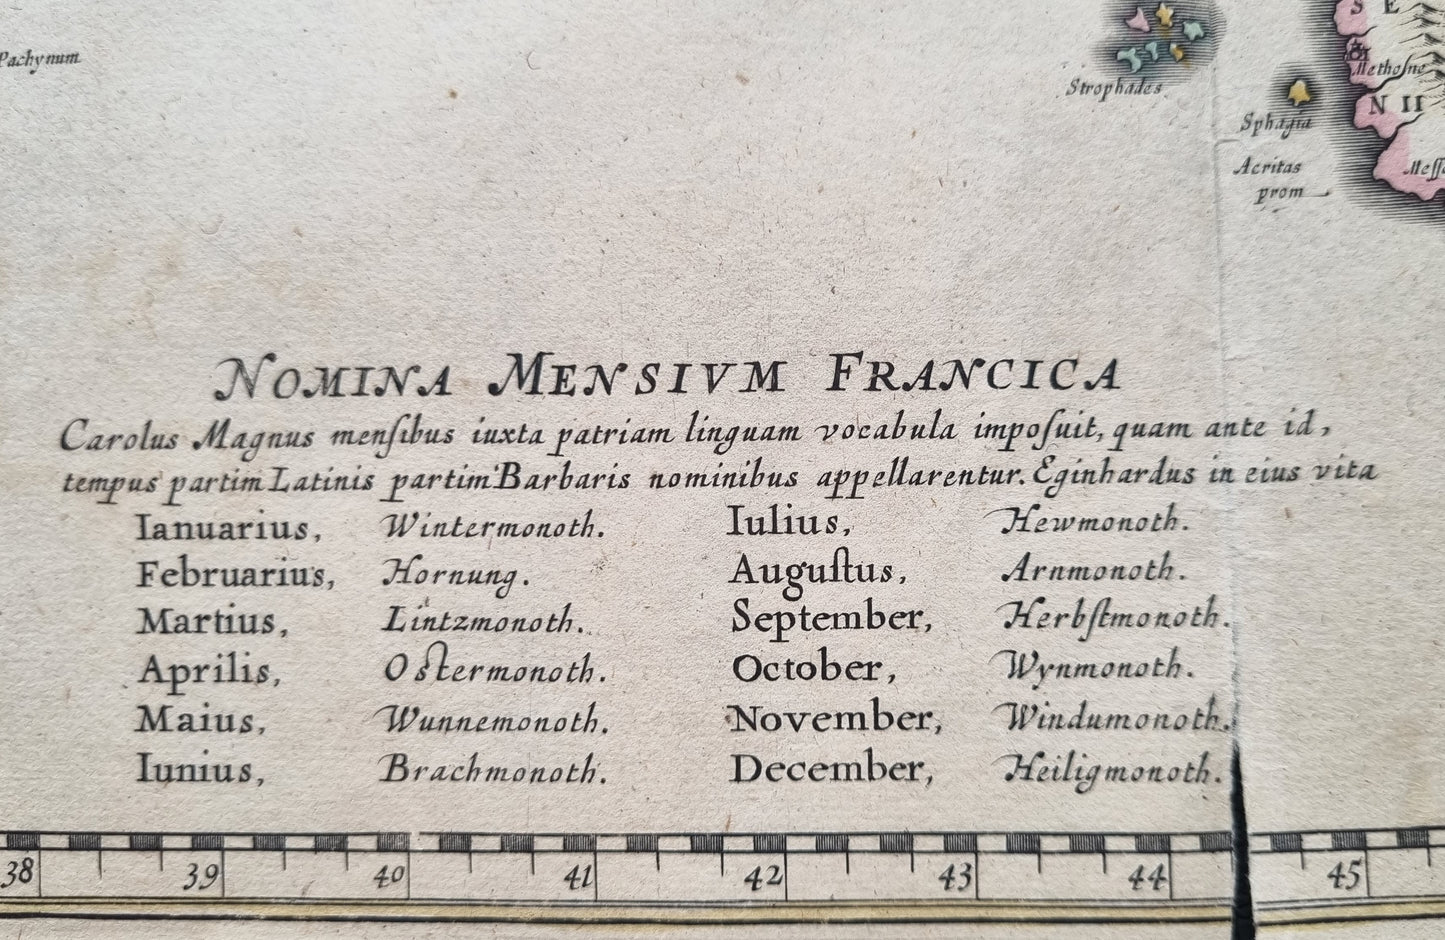 Pachynum
Strophades
S E
Methoſne
N II
Sphagia
Acritas
prom
NOMINA MENSIVM FRANCICA
Carolus Magnus menſibus iuxta patriam linguam vocabula impoſuit, quam ante id,
tempus partim Latinis partim Barbaris nominibus appellarentur. Eginhardus in eius vita
Ianuarius, Wintermonoth. Iulius, Hewmonoth.
Februarius, Hornung. Auguſtus, Arnmonoth.
Martius, Lintzmonoth. September, Herbſtmonoth.
Aprilis, Oſtermonoth. October, Wynmonoth.
Maius, Wunnemonoth. November, Windumonoth.
Iunius, Brachmonoth. December, Heiligmonoth.
38 39 40 41 42 43 44 45